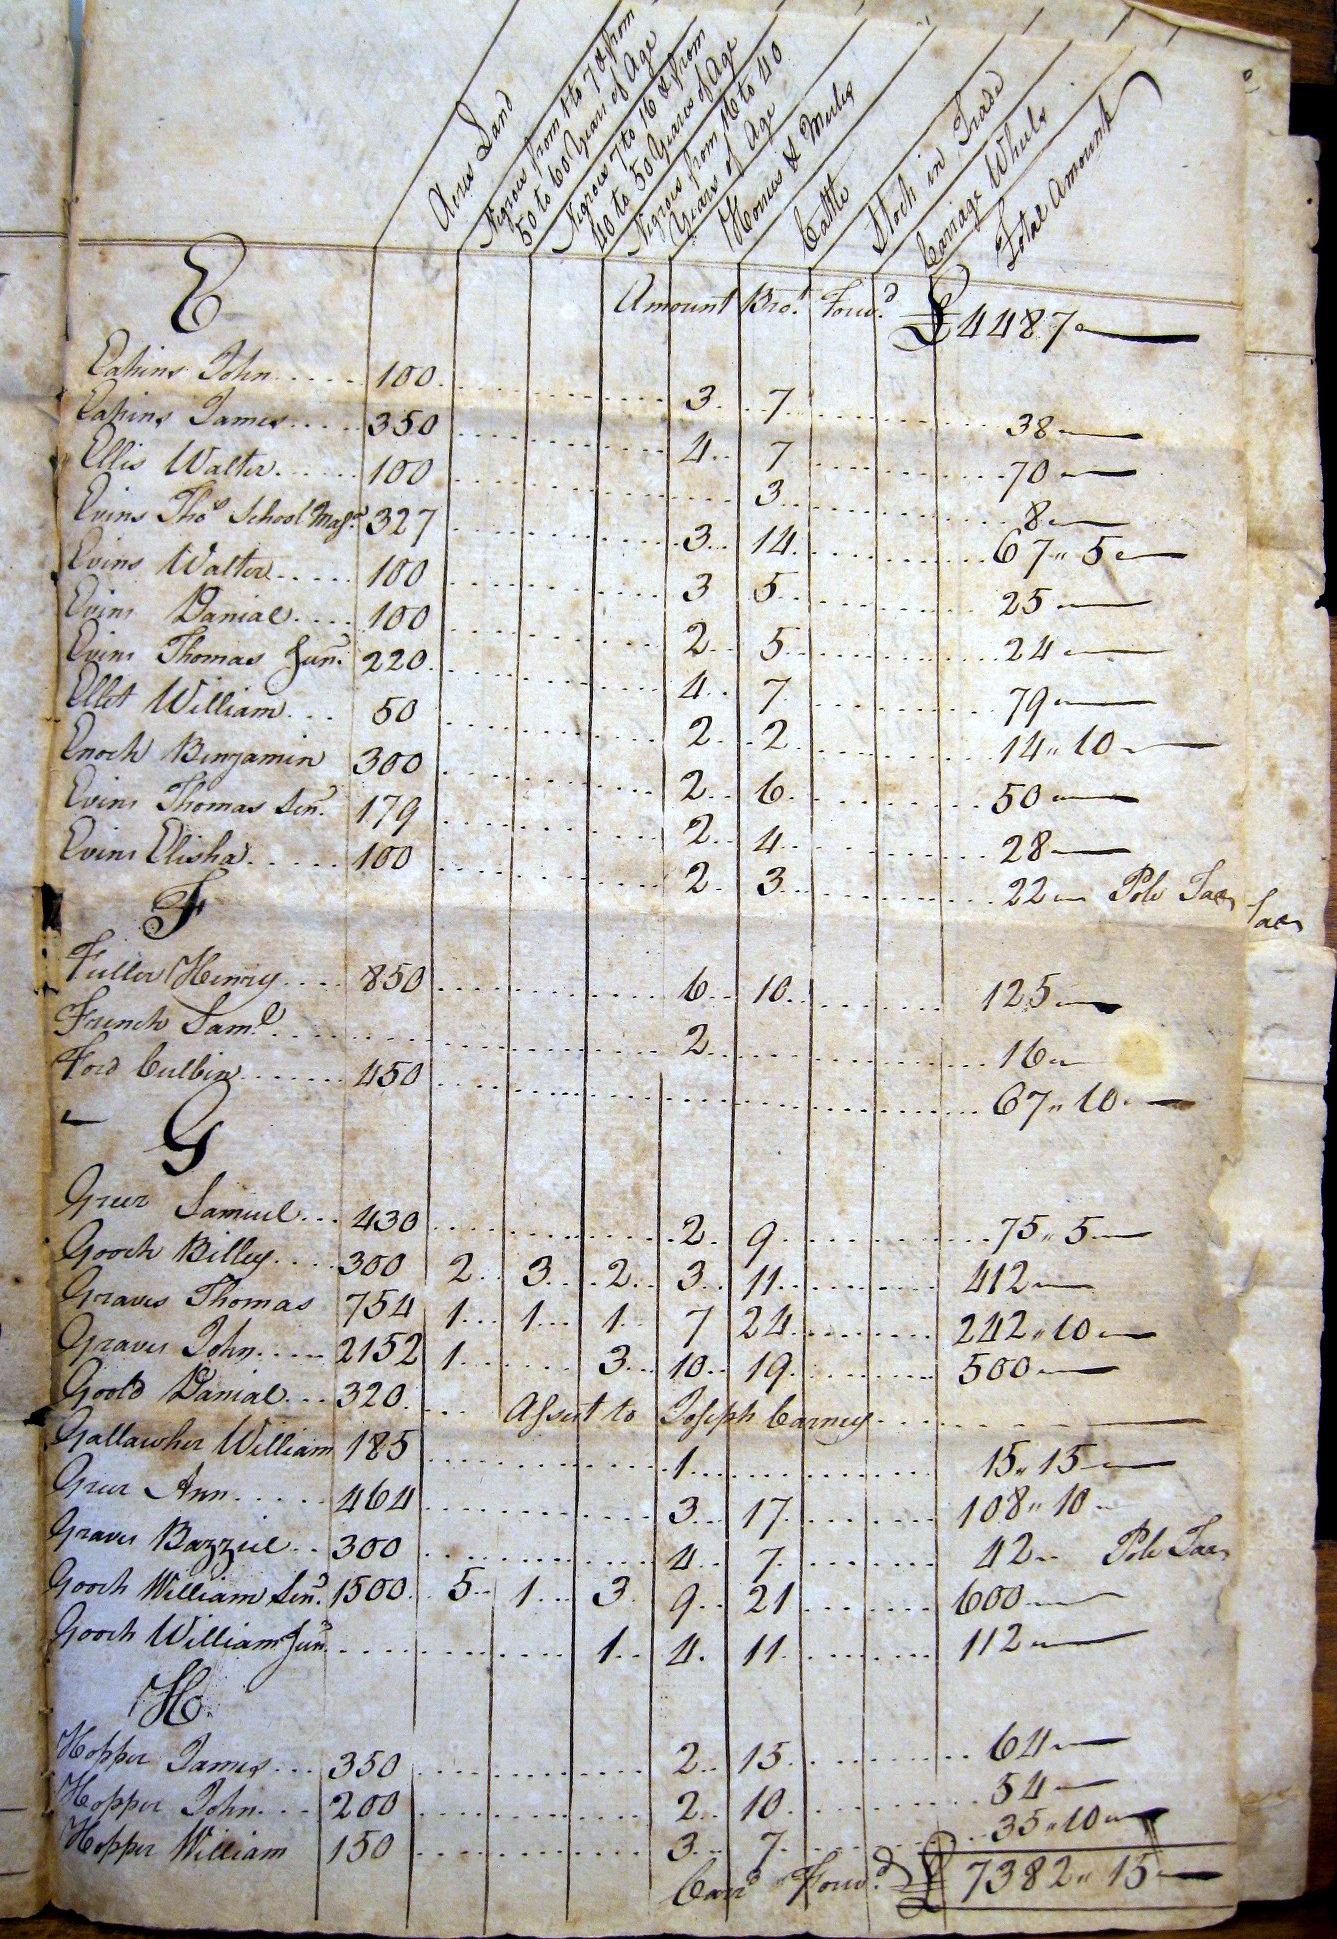 Acres Land
Negroes from 1 to 7 & from 50 to 60 Years of Age
Negroes 7 to 16 & from 40 to 50 Years of Age
Negroes from 16 to 40 Years of Age
Horses & Mules
Cattle
Stock in Trade
Carriage Wheels
Total Amount
E
Amount Bro.t Forw.d £4487
Eakins John 100 3 7 38
Eakins James 350 4 7 70
Ellis Walter 100 3 8
Evins Tho.s School Mas.r 327 3 14 67 " 5
Evins Walter 100 3 5 25
Evins Danial 100 2 5 24
Evins Thomas Jun.r 220 4 7 79
Ellet William 50 2 2 14 " 10
Enoch Binjamin 300 2 6 50
Evins Thomas Sen.r 179 2 4 28
Evins Elisha 100 2 3 22 Pole Tax
Tax
F
Fuller Henry 850 6 10 125
French Sam.l 2 16
Ford Culbin 450 67 " 10
G
Greer Samuel 430 2 9 75 " 5
Gooch Billey 300 2 3 2 3 11 412
Graves Thomas 754 1 1 1 7 24 242 " 10
Graves John 2152 1 3 10 19 500
Goold Danial 320 Assest to Joseph Carney
Gallawher William 185 1 15 " 15
Greer Ann 464 3 17 108 " 10
Graves Bazziel 300 4 7 42 Pole Tax
Gooch William Sen.r 1500 5 1 3 9 21 600
Gooch William Jun.r 1 4 11 112
H
Hopper James 350 2 15 64
Hopper John 200 2 10 54
Hopper William 150 3 7 35 " 10
Carr.d Forw.d £ 7382 " 15